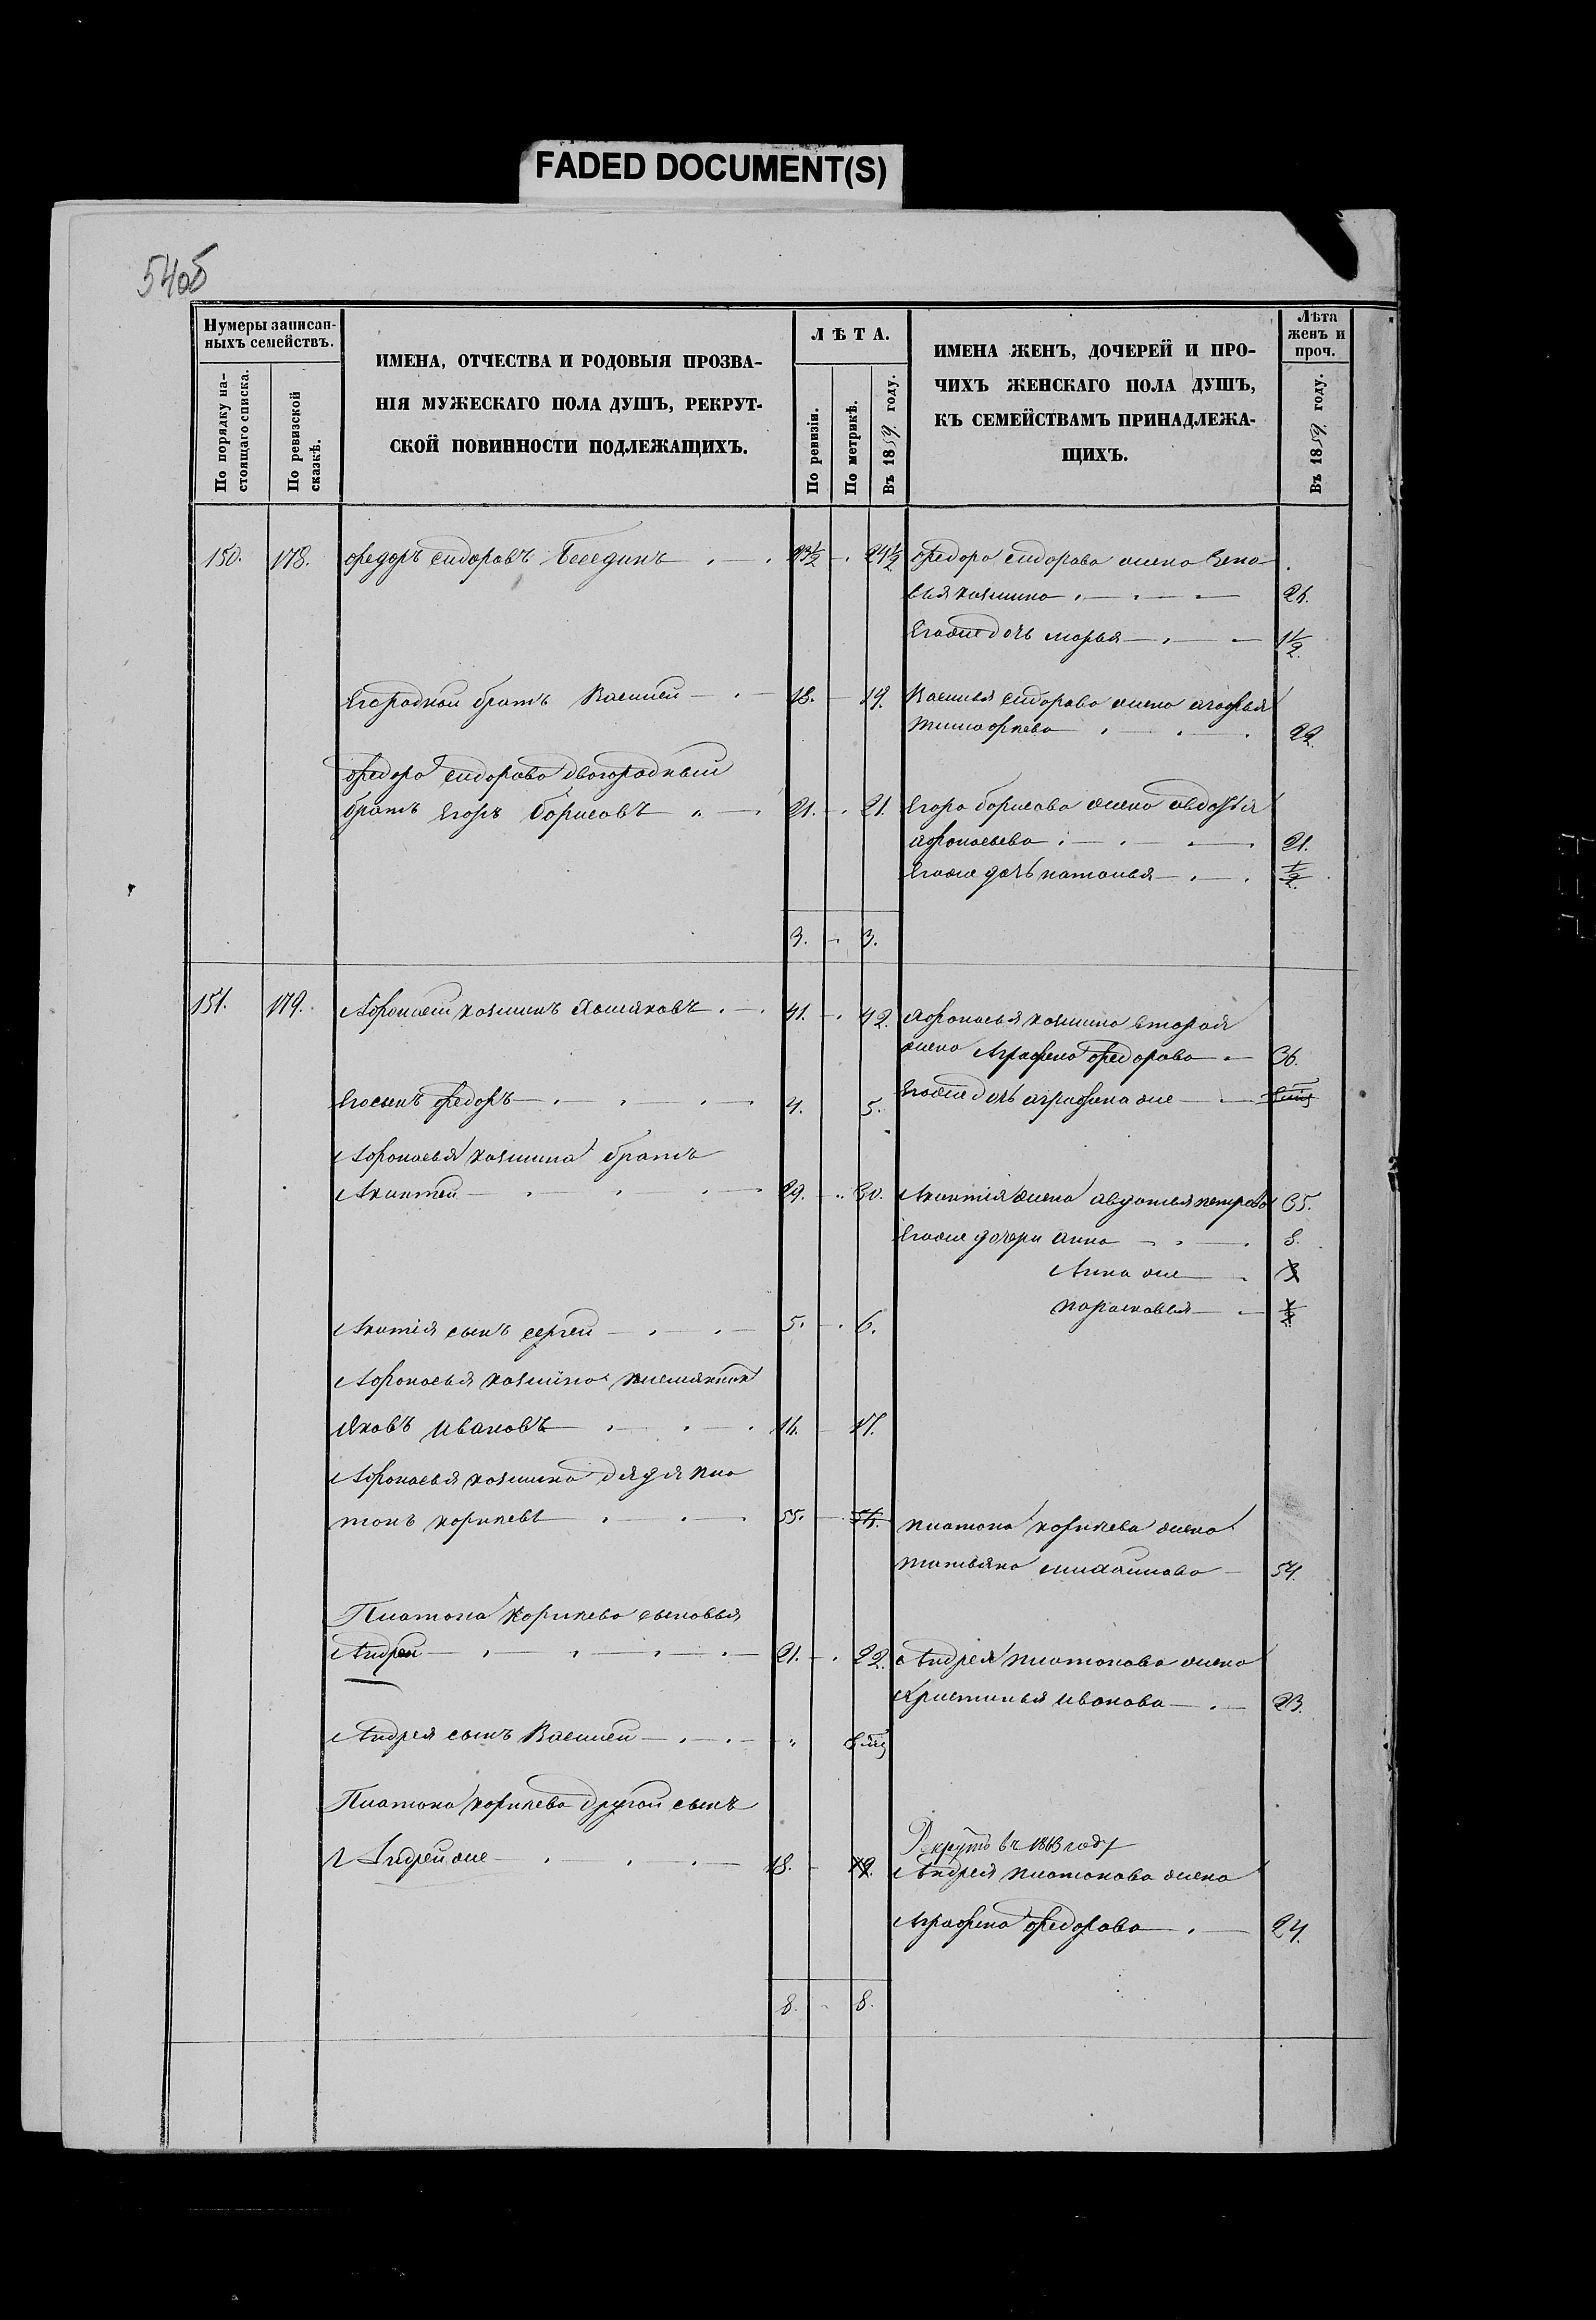 FADED DOCUMENT(S)
54об
Нумеры записан-
ныхъ семействъ.
По порядку на-
стоящаго списка.
По ревизской
сказкѣ.
ИМЕНА, ОТЧЕСТВА И РОДОВЫЯ ПРОЗВА-
НІЯ МУЖЕСКАГО ПОЛА ДУШЪ, РЕКРУТ-
СКОЙ ПОВИННОСТИ ПОДЛЕЖАЩИХЪ.
ЛѢТА.
По ревизіи.
По метрикѣ.
Въ 1859 году.
ИМЕНА ЖЕНЪ, ДОЧЕРЕЙ И ПРО-
ЧИХЪ ЖЕНСКАГО ПОЛА ДУШЪ,
КЪ СЕМЕЙСТВАМЪ ПРИНАДЛЕЖА-
ЩИХЪ.
Лѣта
женъ и
проч.
Въ 1859 году.
150. 178. Федоръ Сидоровъ Бесединъ 23½ 24½ Федора Сидорова жена Зено
вья Козмина
Егоже дочь Марья 1½
Егородной братъ Василей 18. 19. Василья Сидорова жена Агафья
Тимофеева 22
Федора Сидорова двоюродный
братъ Егоръ Борисовъ 21. 21. Егора Борисова жена Авдотья
Афонасьева 21.
Егоже дочь Наталья ½.
3. 3.
151. 179. Афонасей Козминъ 41. 42. Афонасья Козмина вторая
жена Аграфена Федорова 36.
Егосынъ Федоръ 4. 5. Егоже дочь Аграфена же
Афонасья Козмина братъ
29. 30. жена Авдотья Петрова 35.
Егоже дочери Анна 8.
Анна же 3
Парасковья
сынъ Сергей 5. 6.
Афонасья Козмина племянник
Яковъ Ивановъ 16. 17.
Афонасья Козмина дядя Пла
тонъ Корнеевъ 55. 56. Платона Корнеева жена
Татьяна Михайлова 54.
Платона Корнеева сыновья
Андрей 21. 22. Андрея Платонова жена
Кристинья Иванова 23.
Андрея сынъ Василей
Платона Корнеева другой сынъ
Рекрутъ въ 1863 году
Андрей же 18. 19. Андрея Платонова жена
Аграфена Федорова 24.
8. 8.